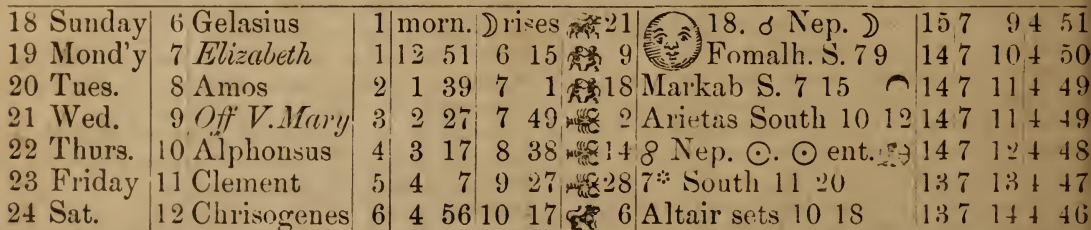 18 Sunday 6 Gelasius 1 morn. ☽ rises 21 18. ☌ Nep. ☽ 15 7 9 4 51
19 Mond'y 7 Elizabeth 1 12 51 6 15 9 Fomalh. S. 7 9 14 7 10 4 50
20 Tues. 8 Amos 2 1 39 7 1 18 Markab S. 7 15 14 7 11 4 49
21 Wed. 9 Off V.Mary 3 2 27 7 49 2 Arietas South 10 12 14 7 11 4 49
22 Thurs. 10 Alphonsus 4 3 17 8 38 14 8 Nep. ☉. ☉ ent. 14 7 12 4 48
23 Friday 11 Clement 5 4 7 9 27 28 7* South 11 20 13 7 13 4 47
24 Sat. 12 Chrisogenes 6 4 56 10 17 6 Altair sets 10 18 13 7 14 4 46